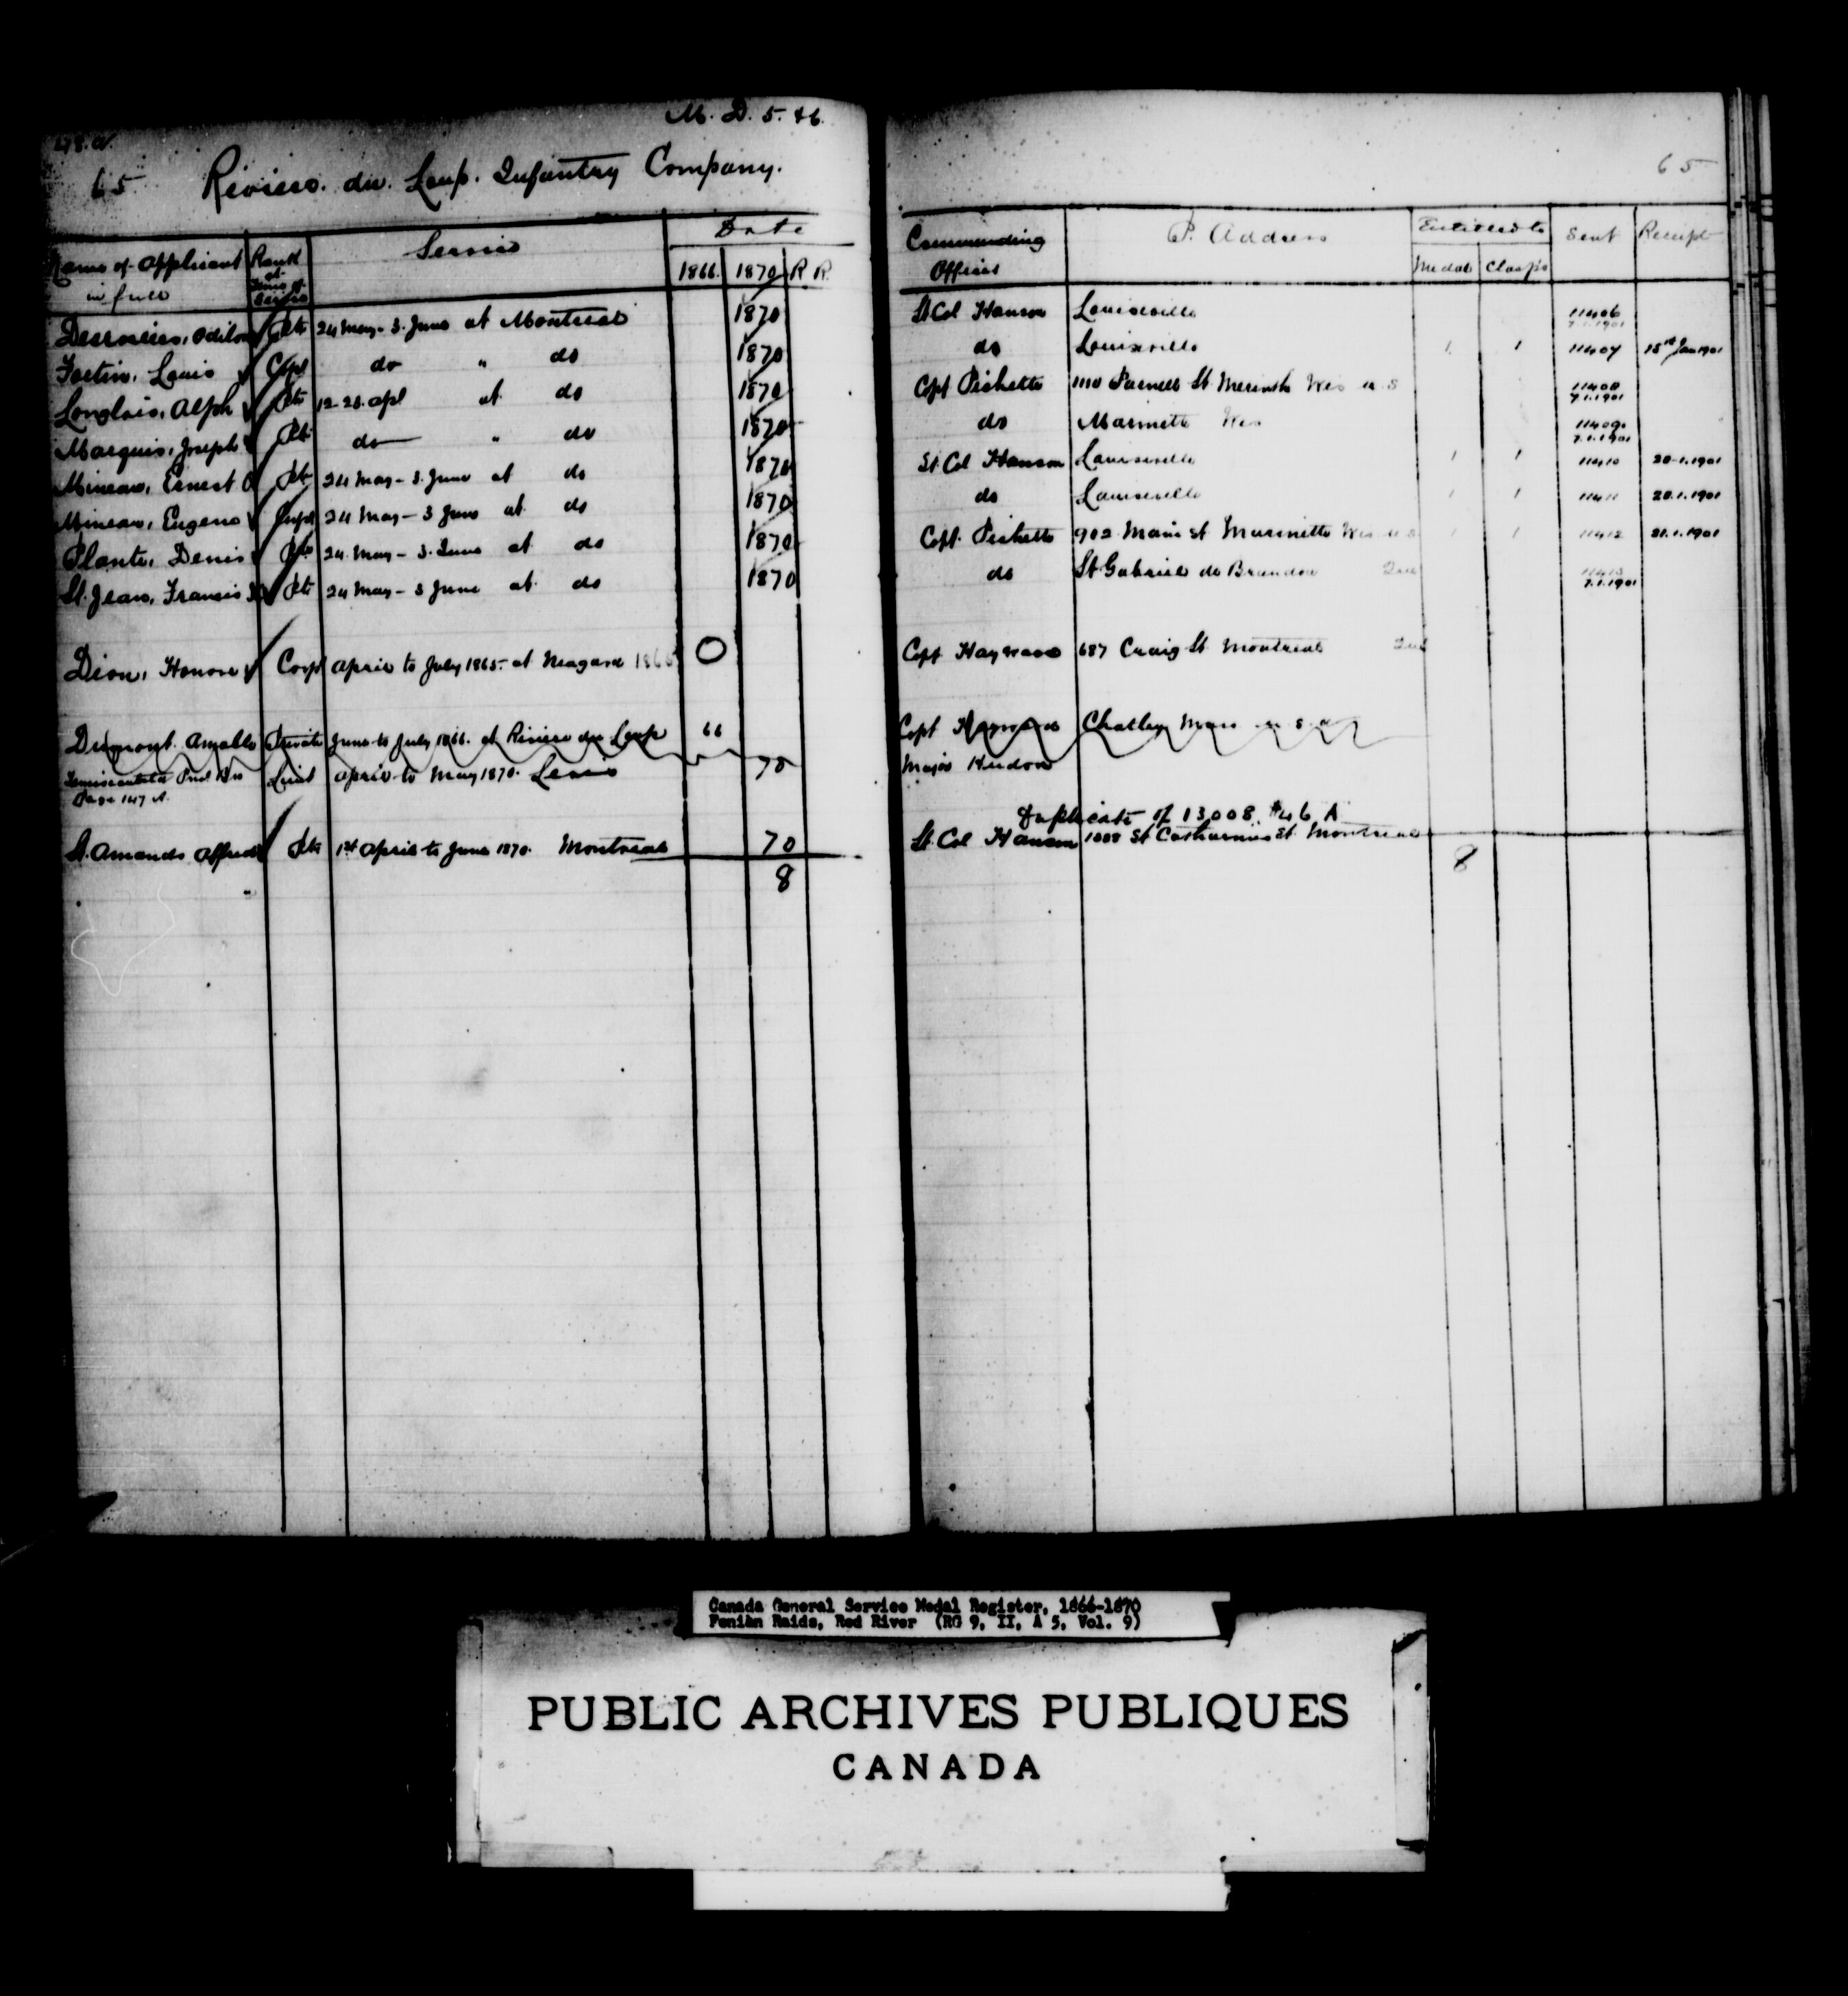 M. D. 5. & 6.
65 Riviere du Loup Infantry Company.
65
Name of Applicant in full Rank at time of Service Service Date 1866. 1870 R R.
Commanding Officer P. Address Entitled to Medal Clasps Sent Receipt
Odilon Pte 24 May - 3. June at Montreal 1870 Lt Col Hanson Louiseville 11406 7.1.1901
Fortin, Louis Corpl do " do 1870 do Louiseville 1 1 11407 18th Jan 1901
Langlais, Alph Pte 12-28. apl at do 1870 Capt Pichette 1110 St. Wis U S 11408 7.1.1901
Marquis, Joseph Pte do " do 1870 do Marinette Wis 11409 7.1.1901
Mineau, Ernest O Pte 24 May - 3. June at do 1870 Lt Col Hanson Louiseville 1 1 11410 20-1.1901
Mineau, Eugene 24 May - 3 June at do 1870 do Louiseville 1 1 11411 20.1.1901
Plante, Denis Pte 24. May - 3. June at do 1870 Capt. Pichette 902 Main St Marinette Wis U S 1 1 11412 21.1.1901
St. Jean, Francis X Pte 24 May - 3 June at do 1870 do St Gabriel de Brandon Que 11413 7.1.1901
Dion, Honore Corpl April to July 1865. at Niagara O Capt Hayward 687 Craig St Montreal Que
Dumont. Amable Private June to July 1866. at Riviere du Loup 66 Capt Hayward Mass U. S. A
Temiscouata Prov Bn Page 147 A. Lieut April to May 1870. Levis 70 Major Hudon
Duplicate of 13,008, #46 A
St. Amande Alfred Pte 1st April to June 1870. Montreal 70 Lt. Col Hanson 1008 St Catharines St. Montreal
8 8
Canada General Service Medal Register, 1866-1870
Fenian Raids, Red River (RG 9, II, A 5, Vol. 9)
PUBLIC ARCHIVES PUBLIQUES
CANADA